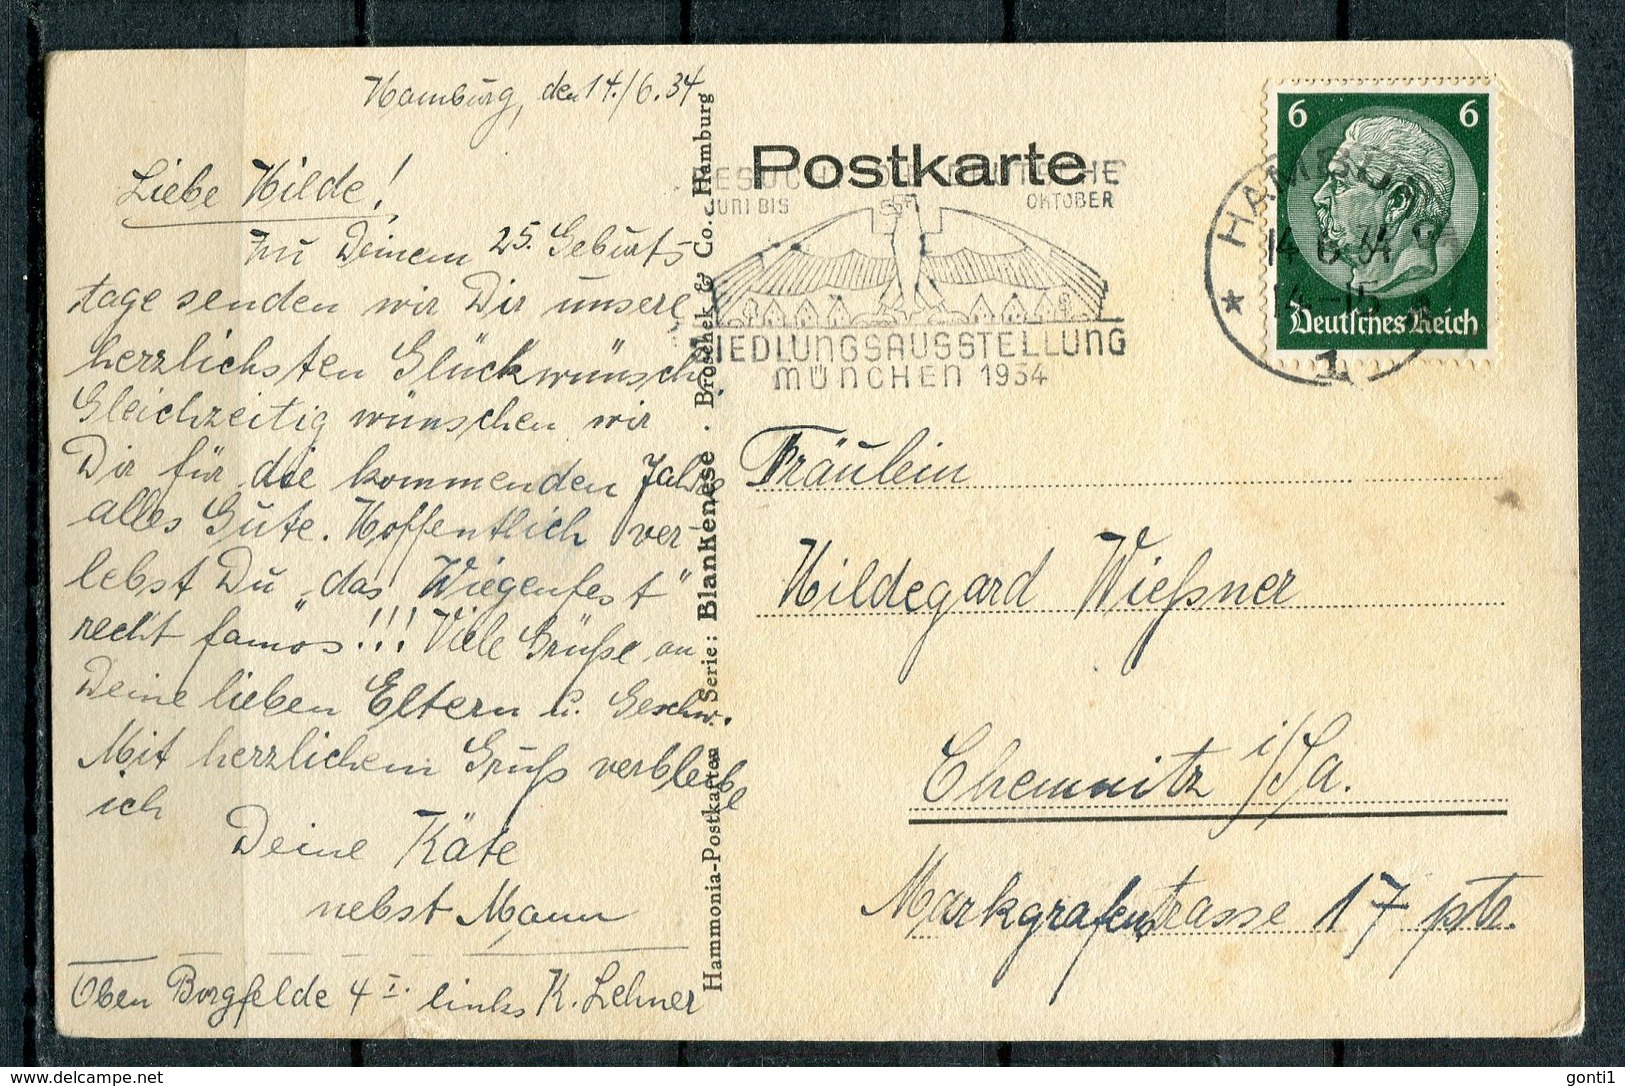 Hamburg, den 14./6.34
Liebe Hilde!
Zu Deinem 25. Geburts-
tage senden wir Dir unsere
herzlichsten Glückwünsche.
Gleichzeitig wünschen wir
Dir für die kommenden Jahre
alles Gute. Hoffentlich ver-
lebst Du „das Wiegenfest“
recht famos!!! Viele Grüße an
Deine lieben Eltern u. Geschw.
Mit herzlichem Gruß verbleibe
ich
Deine Käte
nebst Mann
Oben Borgfelde 4 I. links K. Lehner
Hammonia-Postkarten . Serie: Blankenese . Broschek & Co. Hamburg
Postkarte
DEUTSCHE
JUNI BIS OKTOBER
SIEDLUNGSAUSSTELLUNG
MÜNCHEN 1934
HAMBURG
14.6.34
14-15
1
6 6
Deutsches Reich
Fräulein
Hildegard Wießner
Chemnitz i/Sa.
Markgrafenstrasse 17 ptr.
gonti1
www.delcampe.net